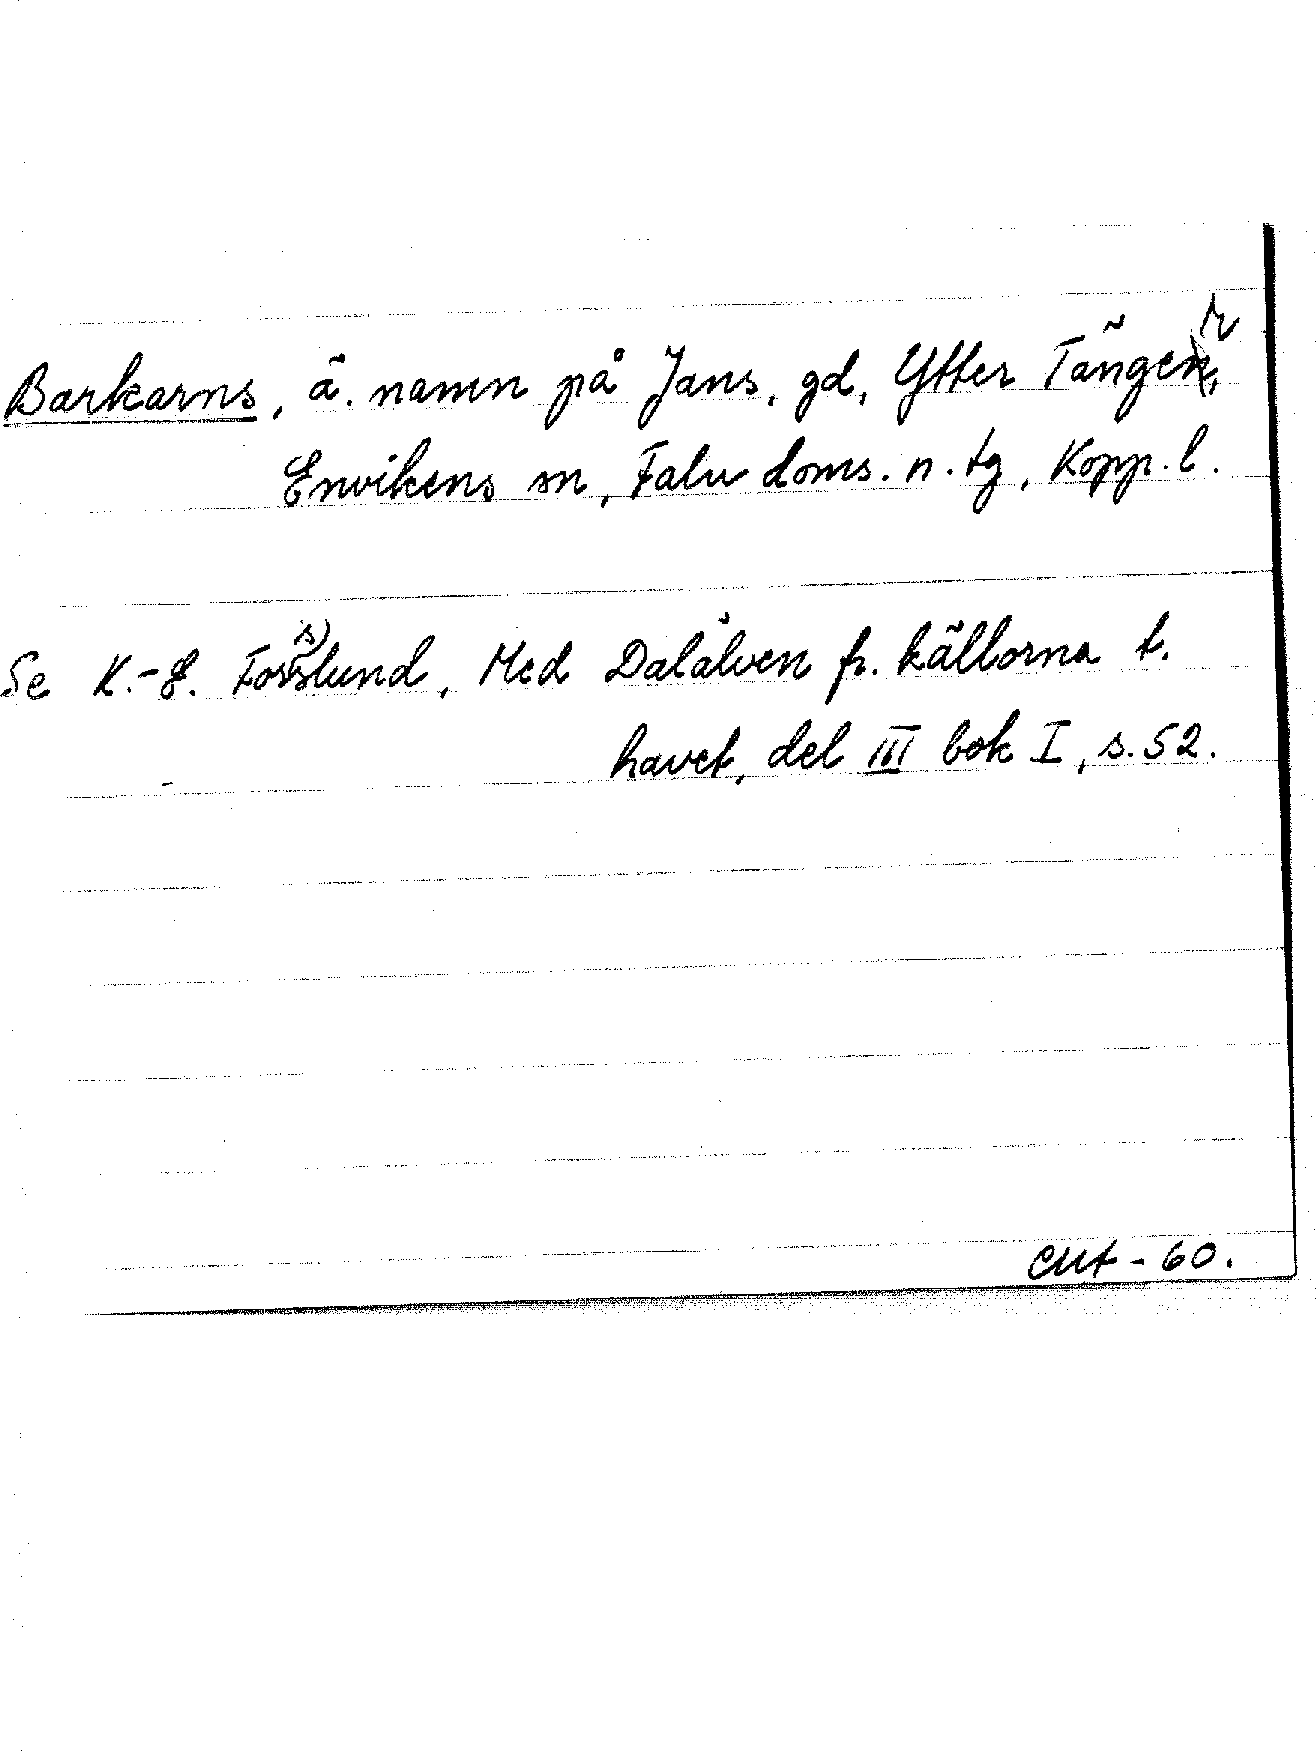 Barkarns, ä. namn på Jans, gd, Ytter Tänger,
Envikens sn, Falu doms. n. tg, Kopp. l.
Se K.-E. Forsslund, Med Dalälven fr. källorna t.
havet, del III bok I, s. 52.
EMt - 60.